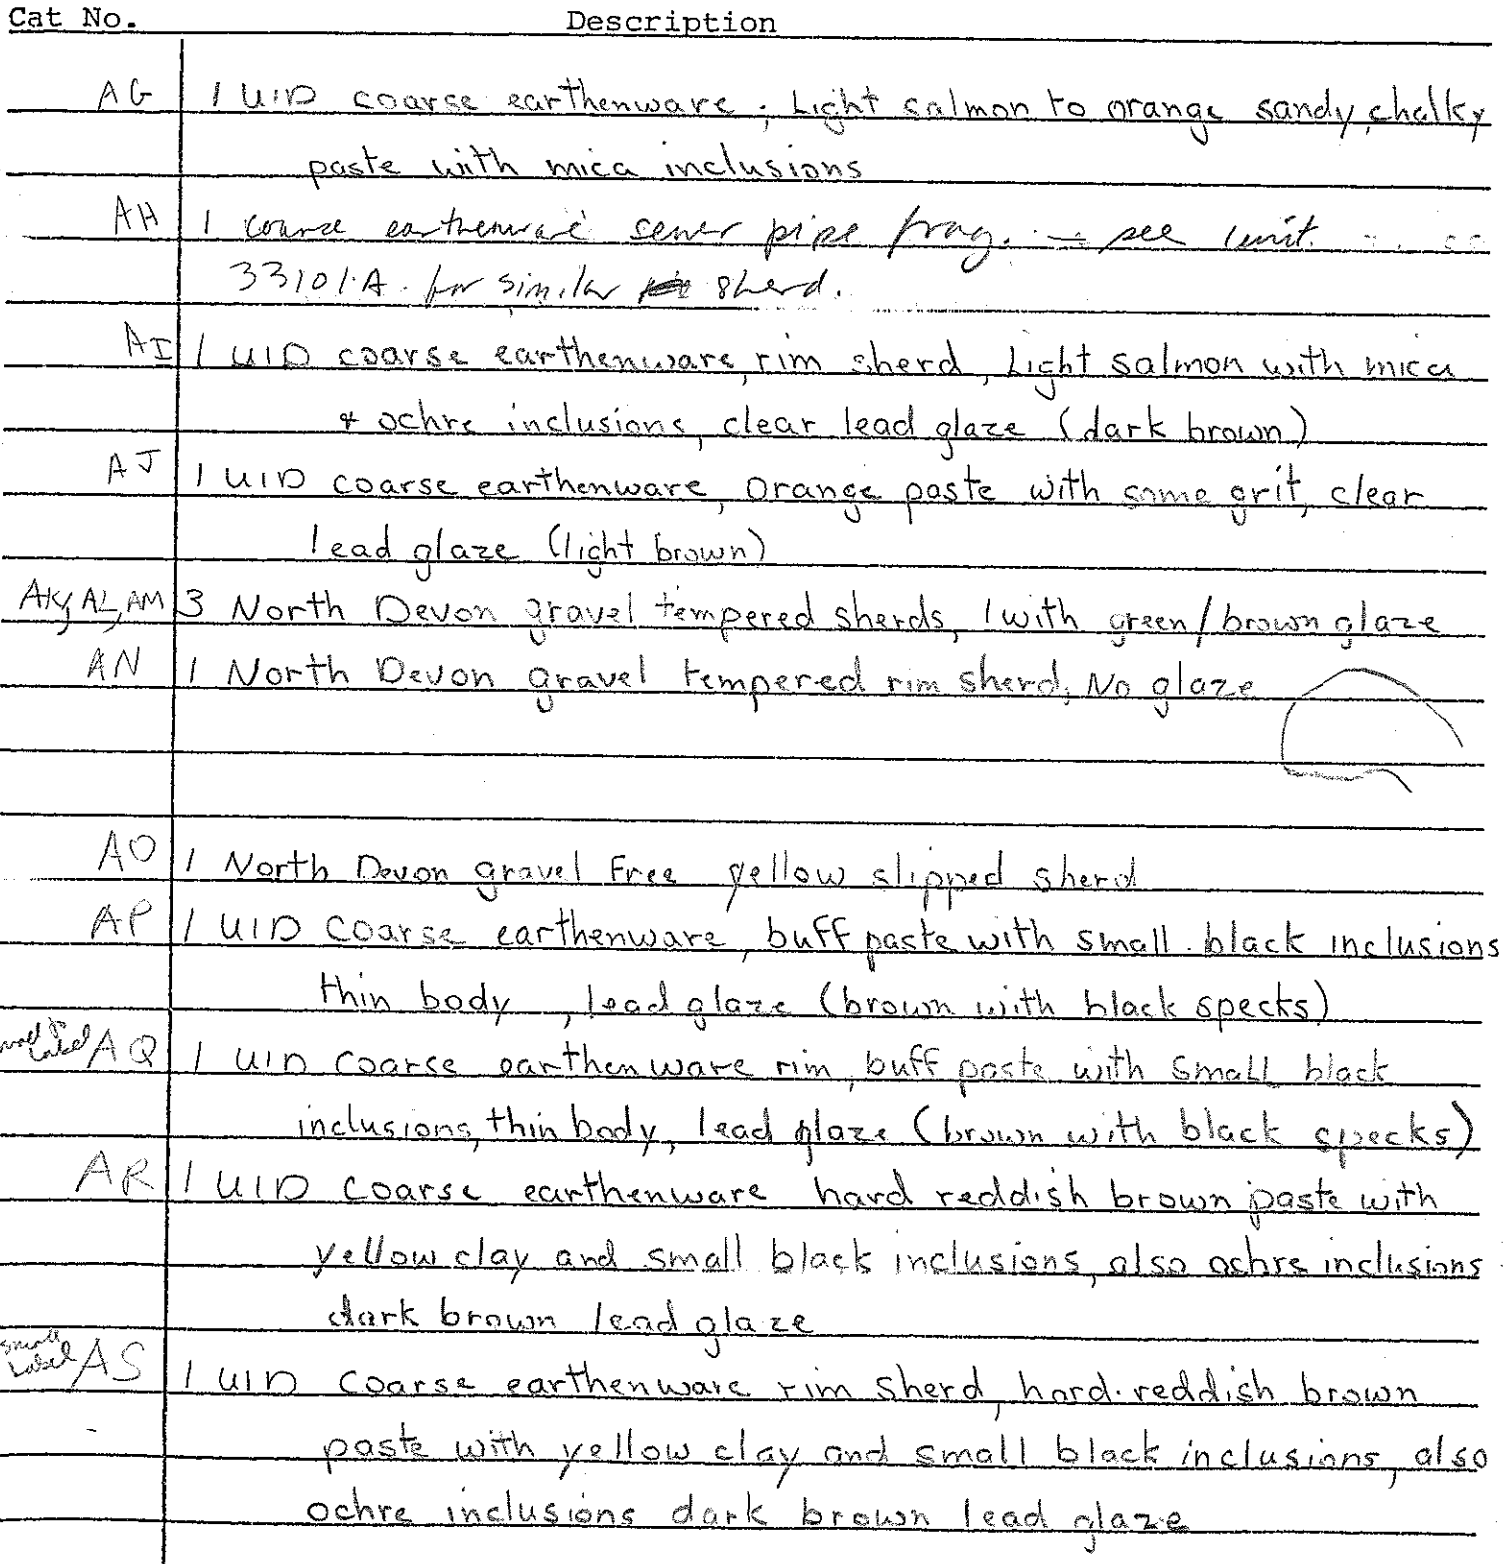 Cat No. Description
AG 1 UID coarse earthenware; Light salmon to orange sandy, chalky
paste with mica inclusions
AH 1 coarse earthenware sewer pipe frag. - see unit
33101.A. for similar sherd.
AI 1 UID coarse earthenware, rim sherd, Light salmon with mica
& ochre inclusions, clear lead glaze (dark brown)
AJ 1 UID coarse earthenware, orange paste with some grit, clear
lead glaze (light brown)
AK, AL, AM 3 North Devon gravel tempered sherds, 1 with green/brown glaze
AN 1 North Devon gravel tempered rim sherd, No glaze
AO 1 North Devon gravel Free yellow slipped sherd
AP 1 UID coarse earthenware, buff paste with small black inclusions
thin body, lead glaze (brown with black specks)
small label AQ 1 UID coarse earthenware rim, buff paste with small black
inclusions, thin body, lead glaze (brown with black specks)
AR 1 UID coarse earthenware hard reddish brown paste with
yellow clay and small black inclusions, also ochre inclusions
dark brown lead glaze
small label AS 1 UID coarse earthenware rim sherd, hard reddish brown
paste with yellow clay and small black inclusions, also
ochre inclusions dark brown lead glaze